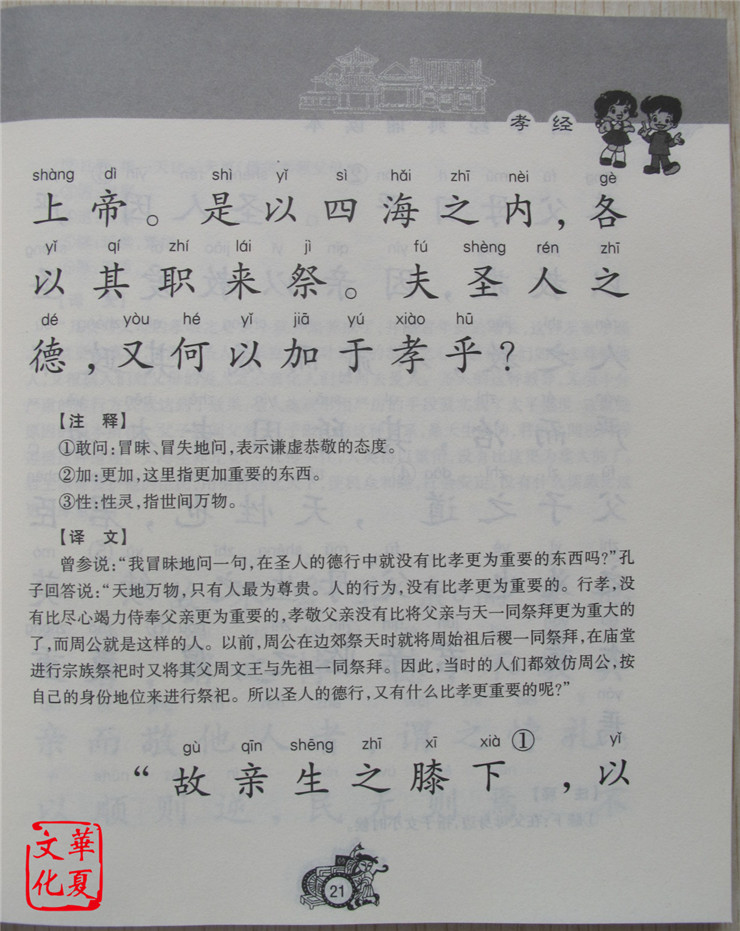 孝经
shàng dì shì yǐ sì hǎi zhī nèi gè
上帝。是以四海之内，各
yǐ qí zhí lái jì fú shèng rén zhī
以其职来祭。夫圣人之
dé yòu hé yǐ jiā yú xiào hū
德，又何以加于孝乎？
【注 释】
①敢问：冒昧、冒失地问，表示谦虚恭敬的态度。
②加：更加，这里指更加重要的东西。
③性：性灵，指世间万物。
【译 文】
曾参说：“我冒昧地问一句，在圣人的德行中就没有比孝更为重要的东西吗？”孔
子回答说：“天地万物，只有人最为尊贵。人的行为，没有比孝更为重要的。行孝，没
有比尽心竭力侍奉父亲更为重要的，孝敬父亲没有比将父亲与天一同祭拜更为重大的
了，而周公就是这样的人。以前，周公在边郊祭天时就将周始祖后稷一同祭拜，在庙堂
进行宗族祭祀时又将其父周文王与先祖一同祭拜。因此，当时的人们都效仿周公，按
自己的身份地位来进行祭祀。所以圣人的德行，又有什么比孝更重要的呢？”
gù qīn shēng zhī xī xià yǐ
“故亲生之膝下①，以
21
華夏文化